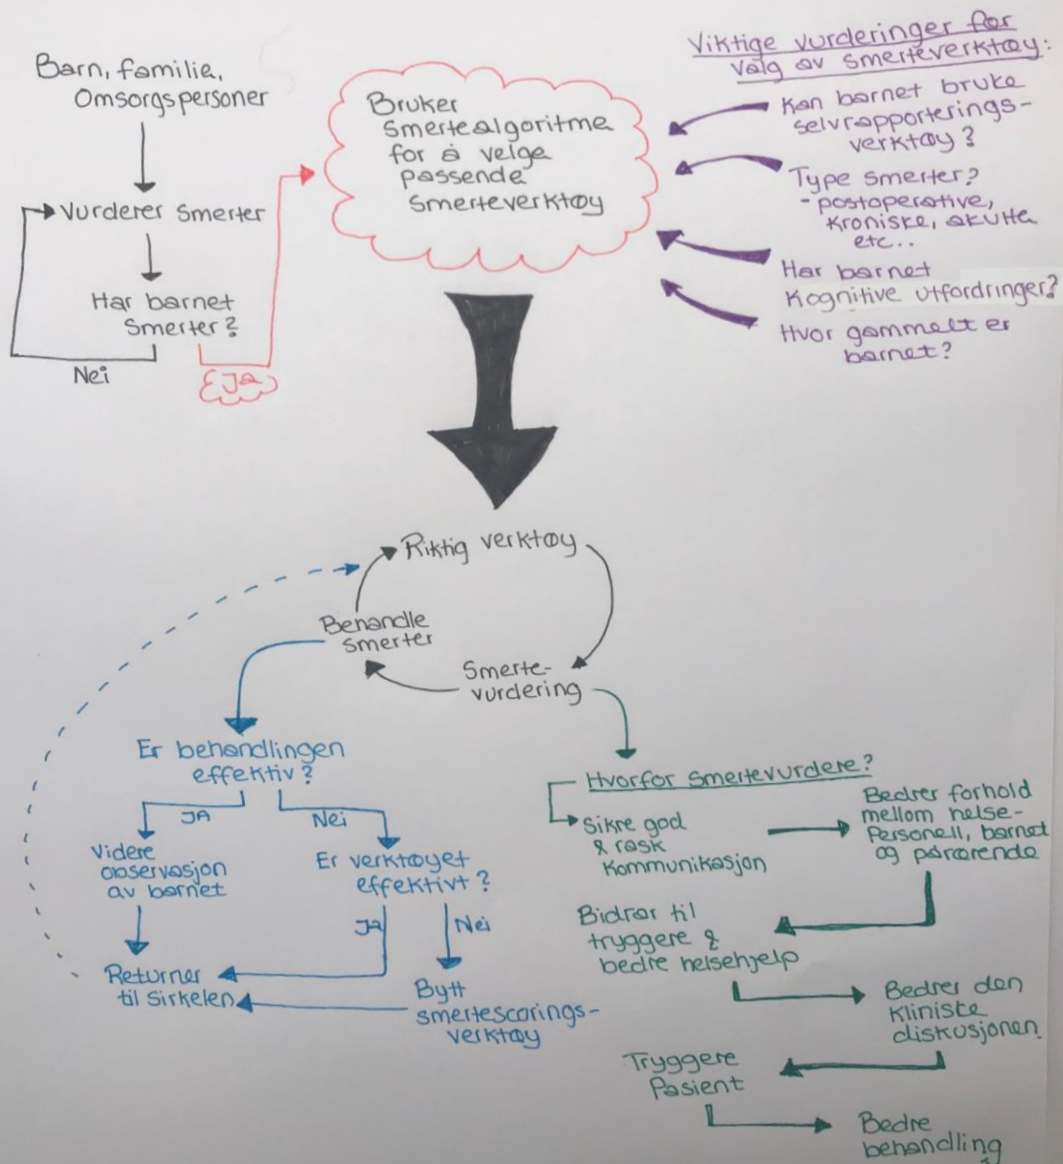 Barn, familie,
Omsorgspersoner
Vurderer smerter
Har barnet
smerter?
Nei
JA
Bruker
smertealgoritme
for å velge
passende
smerteverktøy
Viktige vurderinger for
valg av smerteverktøy:
Kan barnet bruke
selvrapporterings-
verktøy?
Type smerter?
- postoperative,
kroniske, akutte
etc..
Har barnet
Kognitive utfordringer?
Hvor gammelt er
barnet?
Riktig verktøy
Behandle
smerter
Smerte-
vurdering
Er behandlingen
effektiv?
JA
Nei
Videre
observasjon
av barnet
Er verktøyet
effektivt?
Ja
Nei
Returner
til sirkelen
Bytt
smertescorings-
verktøy
Hvorfor smertevurdere?
Sikre god
& rask
kommunikasjon
Bedrer forhold
mellom helse-
Personell, barnet
og pårørende
Bidrar til
tryggere &
bedre helsehjelp
Bedrer den
kliniske
diskusjonen.
Tryggere
Pasient
Bedre
behandling